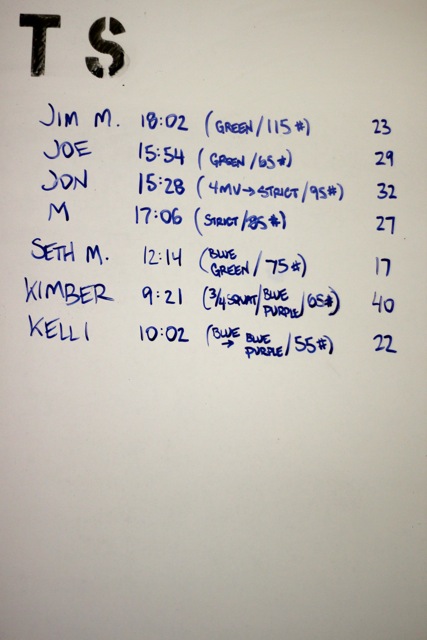 T S
JIM M. 18:02 (GREEN/115#) 23
JOE 15:54 (GREEN/65#) 29
JON 15:28 (4MV→STRICT/95#) 32
M 17:06 (STRICT/85#) 27
SETH M. 12:14 (BLUE GREEN/75#) 17
KIMBER 9:21 (3/4 SQUAT/BLUE PURPLE/65#) 40
KELLI 10:02 (BLUE → BLUE PURPLE/55#) 22